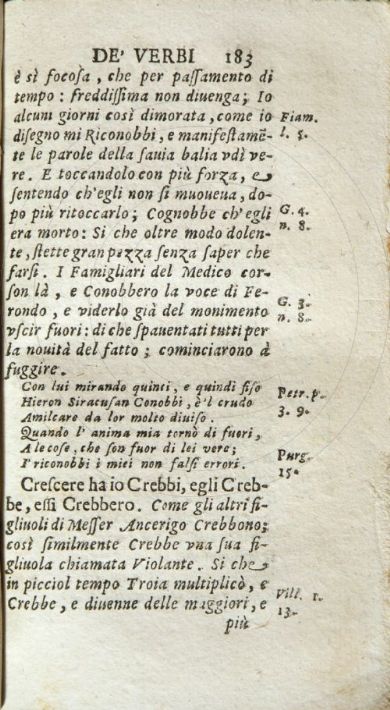 DE' VERBI 183
è sì focosa, che per passamento di
tempo: freddissima non diuenga; Io
alcuni giorni così dimorata, come io Fiam.
disegno mi Riconobbi, e manifestamẽ- l. 5.
te le parole della sauia balia vdì ve-
re. E toccandolo con più forza, e
sentendo ch'egli non si muoueua, do-
po più ritoccarlo; Cognobbe ch'egli G. 4.
era morto: Si che oltre modo dolen- n. 8.
te, stette gran pezza senza saper che
farsi. I Famigliari del Medico cor-
son là, e Conobbero la voce di Fe- G. 3.
rondo, e viderlo già del monimento n. 8.
vscir fuori: di che spauentati tutti per
la nouità del fatto; cominciarono à
fuggire.
Con lui mirando quinci, e quindi fiso
Hieron Siracusan Conobbi, e'l crudo Petr. p.
Amilcaro da lor molto diuiso. 3. 9.
Quando l'anima mia tornò di fuori,
A le cose, che son fuor di lei vere; Purg.
I' riconobbi i miei non falsi errori. 15.
Crescere ha io Crebbi, egli Creb-
be, essi Crebbero. Come gli altri fi-
gliuoli di Messer Ancerigo Crebbono;
così similmente Crebbe vna sua fi-
gliuola chiamata Violante. Si che
in picciol tempo Troia multiplicò, e Vill. 1.
Crebbe, e diuenne delle maggiori, e 13.
più